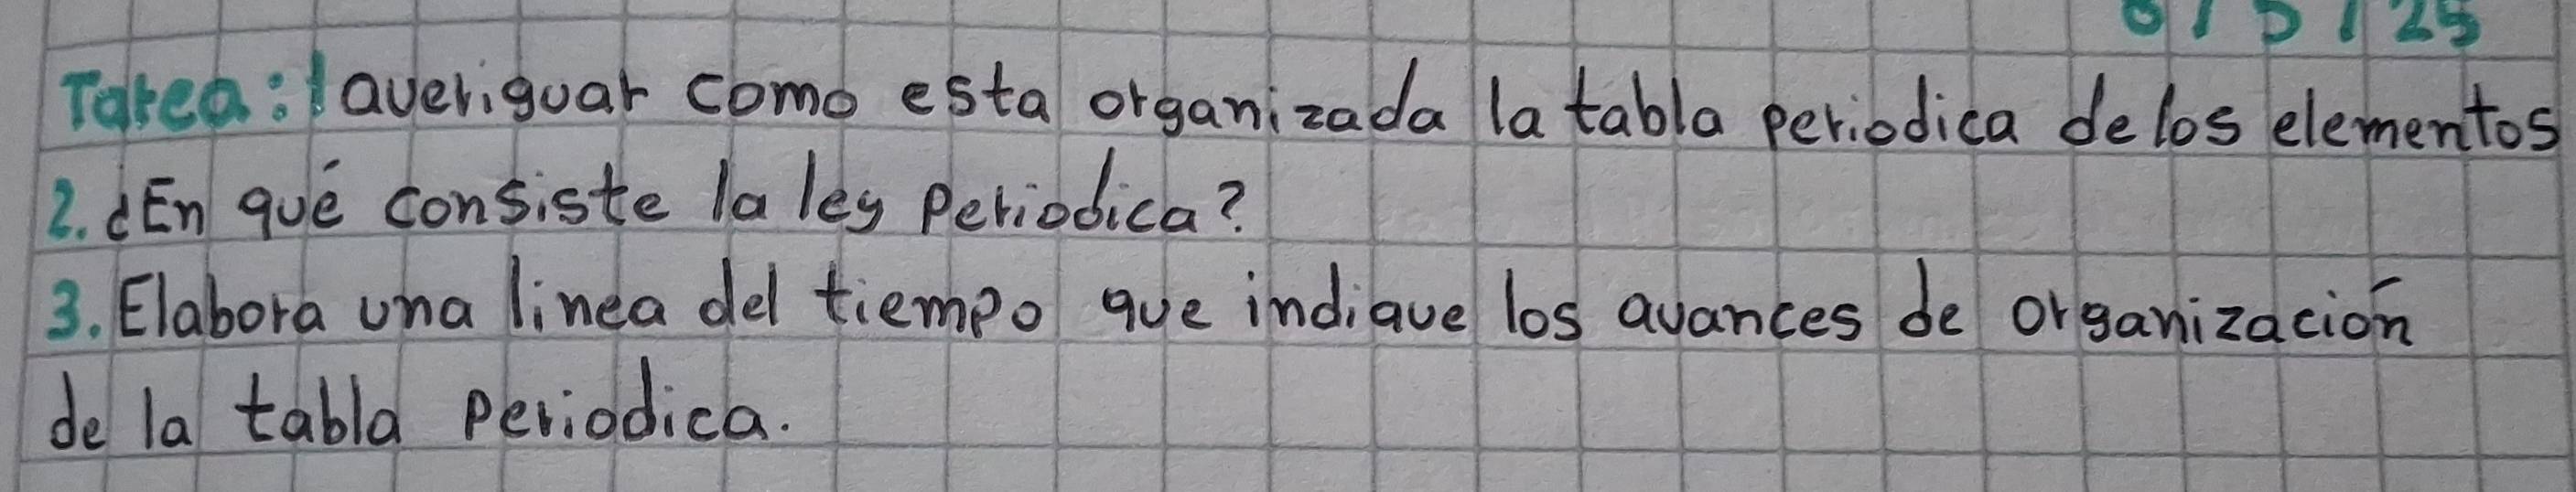 8/5/25
Tarea: 1 averiguar como esta organizada la tabla periodica de los elementos
2. ¿En qué consiste la ley Periodica?
3. Elabora una linea del tiempo que indique los avances de organización
de la tabla Periodica.